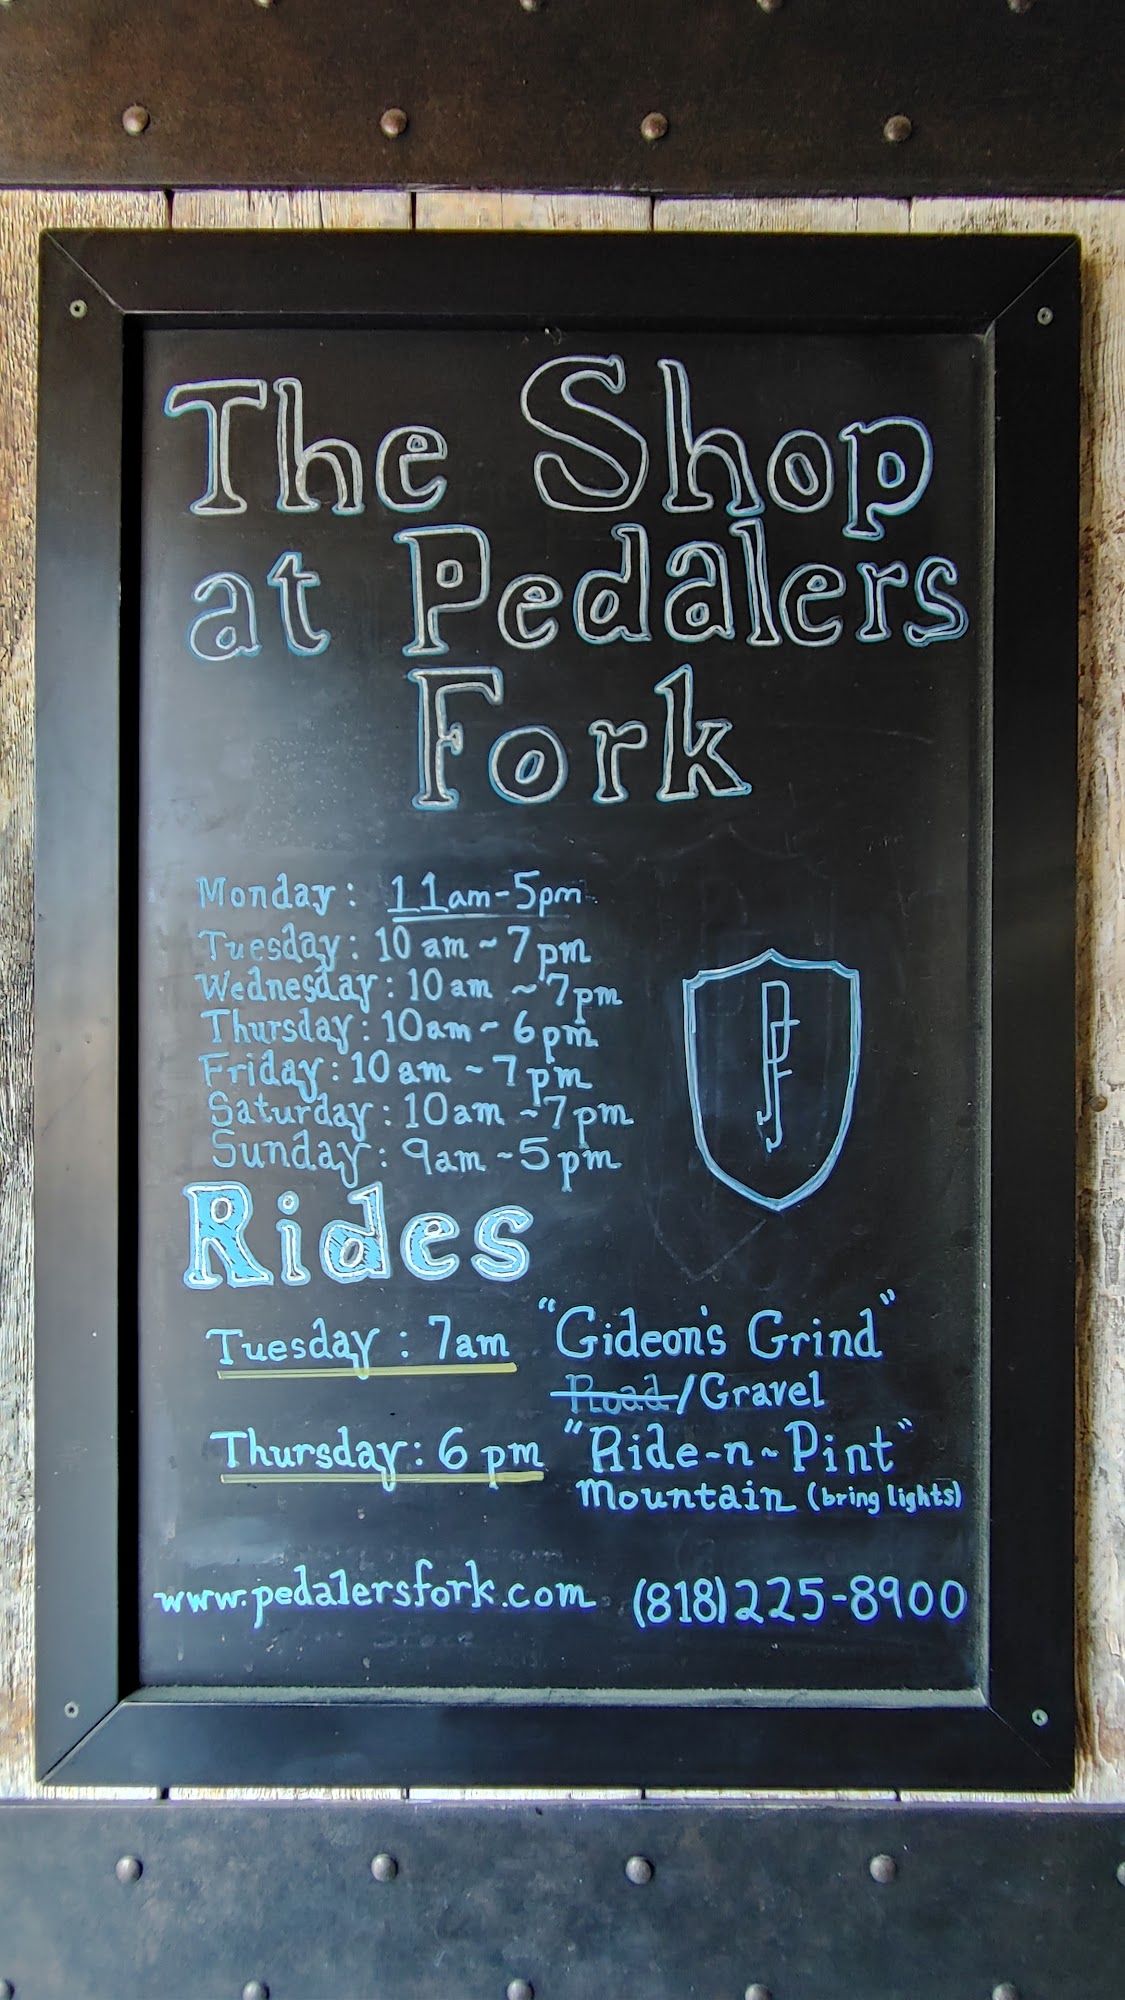 The Shop
at Pedalers
Fork
Monday: 11am-5pm
Tuesday: 10am~7pm
Wednesday: 10am~7pm
Thursday: 10am~6pm
Friday: 10am~7pm
Saturday: 10am~7pm
Sunday: 9am~5pm
PF
Rides
Tuesday: 7am "Gideon's Grind"
Road/Gravel
Thursday: 6pm "Ride-n-Pint"
Mountain (bring lights)
www.pedalersfork.com (818)225-8900